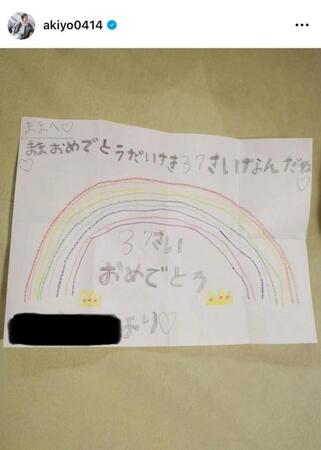 akiyo0414
ままへ♡
ままおめでとうだいすき37さいなんだね
37さい
おめでとう
より♡